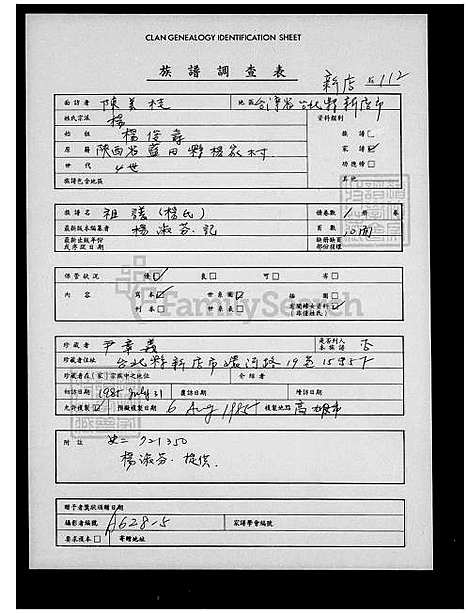 CLAN GENEALOGY IDENTIFICATION SHEET
族譜調查表
新店 112
面訪者 陳美桂 地區 台灣省台北縣新店市
姓氏宗派 楊 資料類別
始祖 楊俊 族譜□
原籍 陝西省藍田縣楊家村 家譜☑
世代 4世 功德榜□
族譜包含地區 其他
族譜名 祖張(楊氏) 總卷數 1 冊 卷
最新版本編纂者 楊淑芬記 頁數 10面
最新出版年份或序訂日期 缺冊缺頁部份說明
保管狀況 優☑ 良□ 可□ 劣□
內容 寫本☑ 世系圖☑ 插圖□
刊本□ 世系表□ 有關婦女資料☑
珍藏者 尹章義 是否列入本族譜 否
珍藏者住址 台北縣新店市環河路19巷
珍藏者在(家)宗族中之地位 介紹者
初訪日期 1985 July 31 復訪日期 增訪日期
允許複製☑ 預擬複製日期 6 Aug 1985 複製地點 高
附註 921350
楊淑芬提供.
贈予者獎狀頒贈日期
攝影者編號 A628-5 家譜學會編號
要求優本□ 寄贈地址
FamilySearch